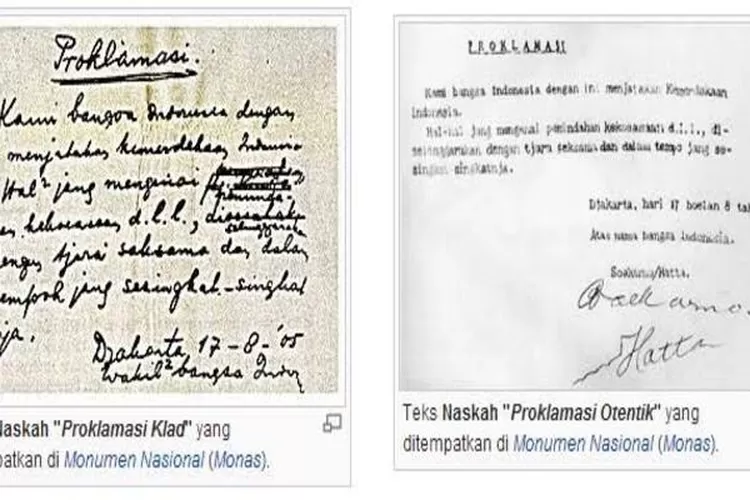 Proklamasi.
Kami bangsa Indonesia dengan
menjatakan kemerdekaan Indonesia
Hal² jang mengenai
d.l.l., diselenggarakan
tjara saksama dan dalam
tempoh jang sesingkat-singkat
nja.
Djakarta 17-8-'05
Wakil² bangsa Indon
Naskah "Proklamasi Klad" yang
patkan di Monumen Nasional (Monas).
PROKLAMASI
Kami bangsa Indonesia dengan ini menjatakan Kemerdekaan
Indonesia.
Hal-hal jang mengenai pemindahan kekoeasaan d.l.l., di-
selenggarakan dengan tjara seksama dan dalam tempo jang se-
singkat-singkatnja.
Djakarta, hari 17 boelan 8 tah
Atas nama bangsa Indonesia.
Soekarno/Hatta.
Soekarno
Hatta
Teks Naskah "Proklamasi Otentik" yang
ditempatkan di Monumen Nasional (Monas).